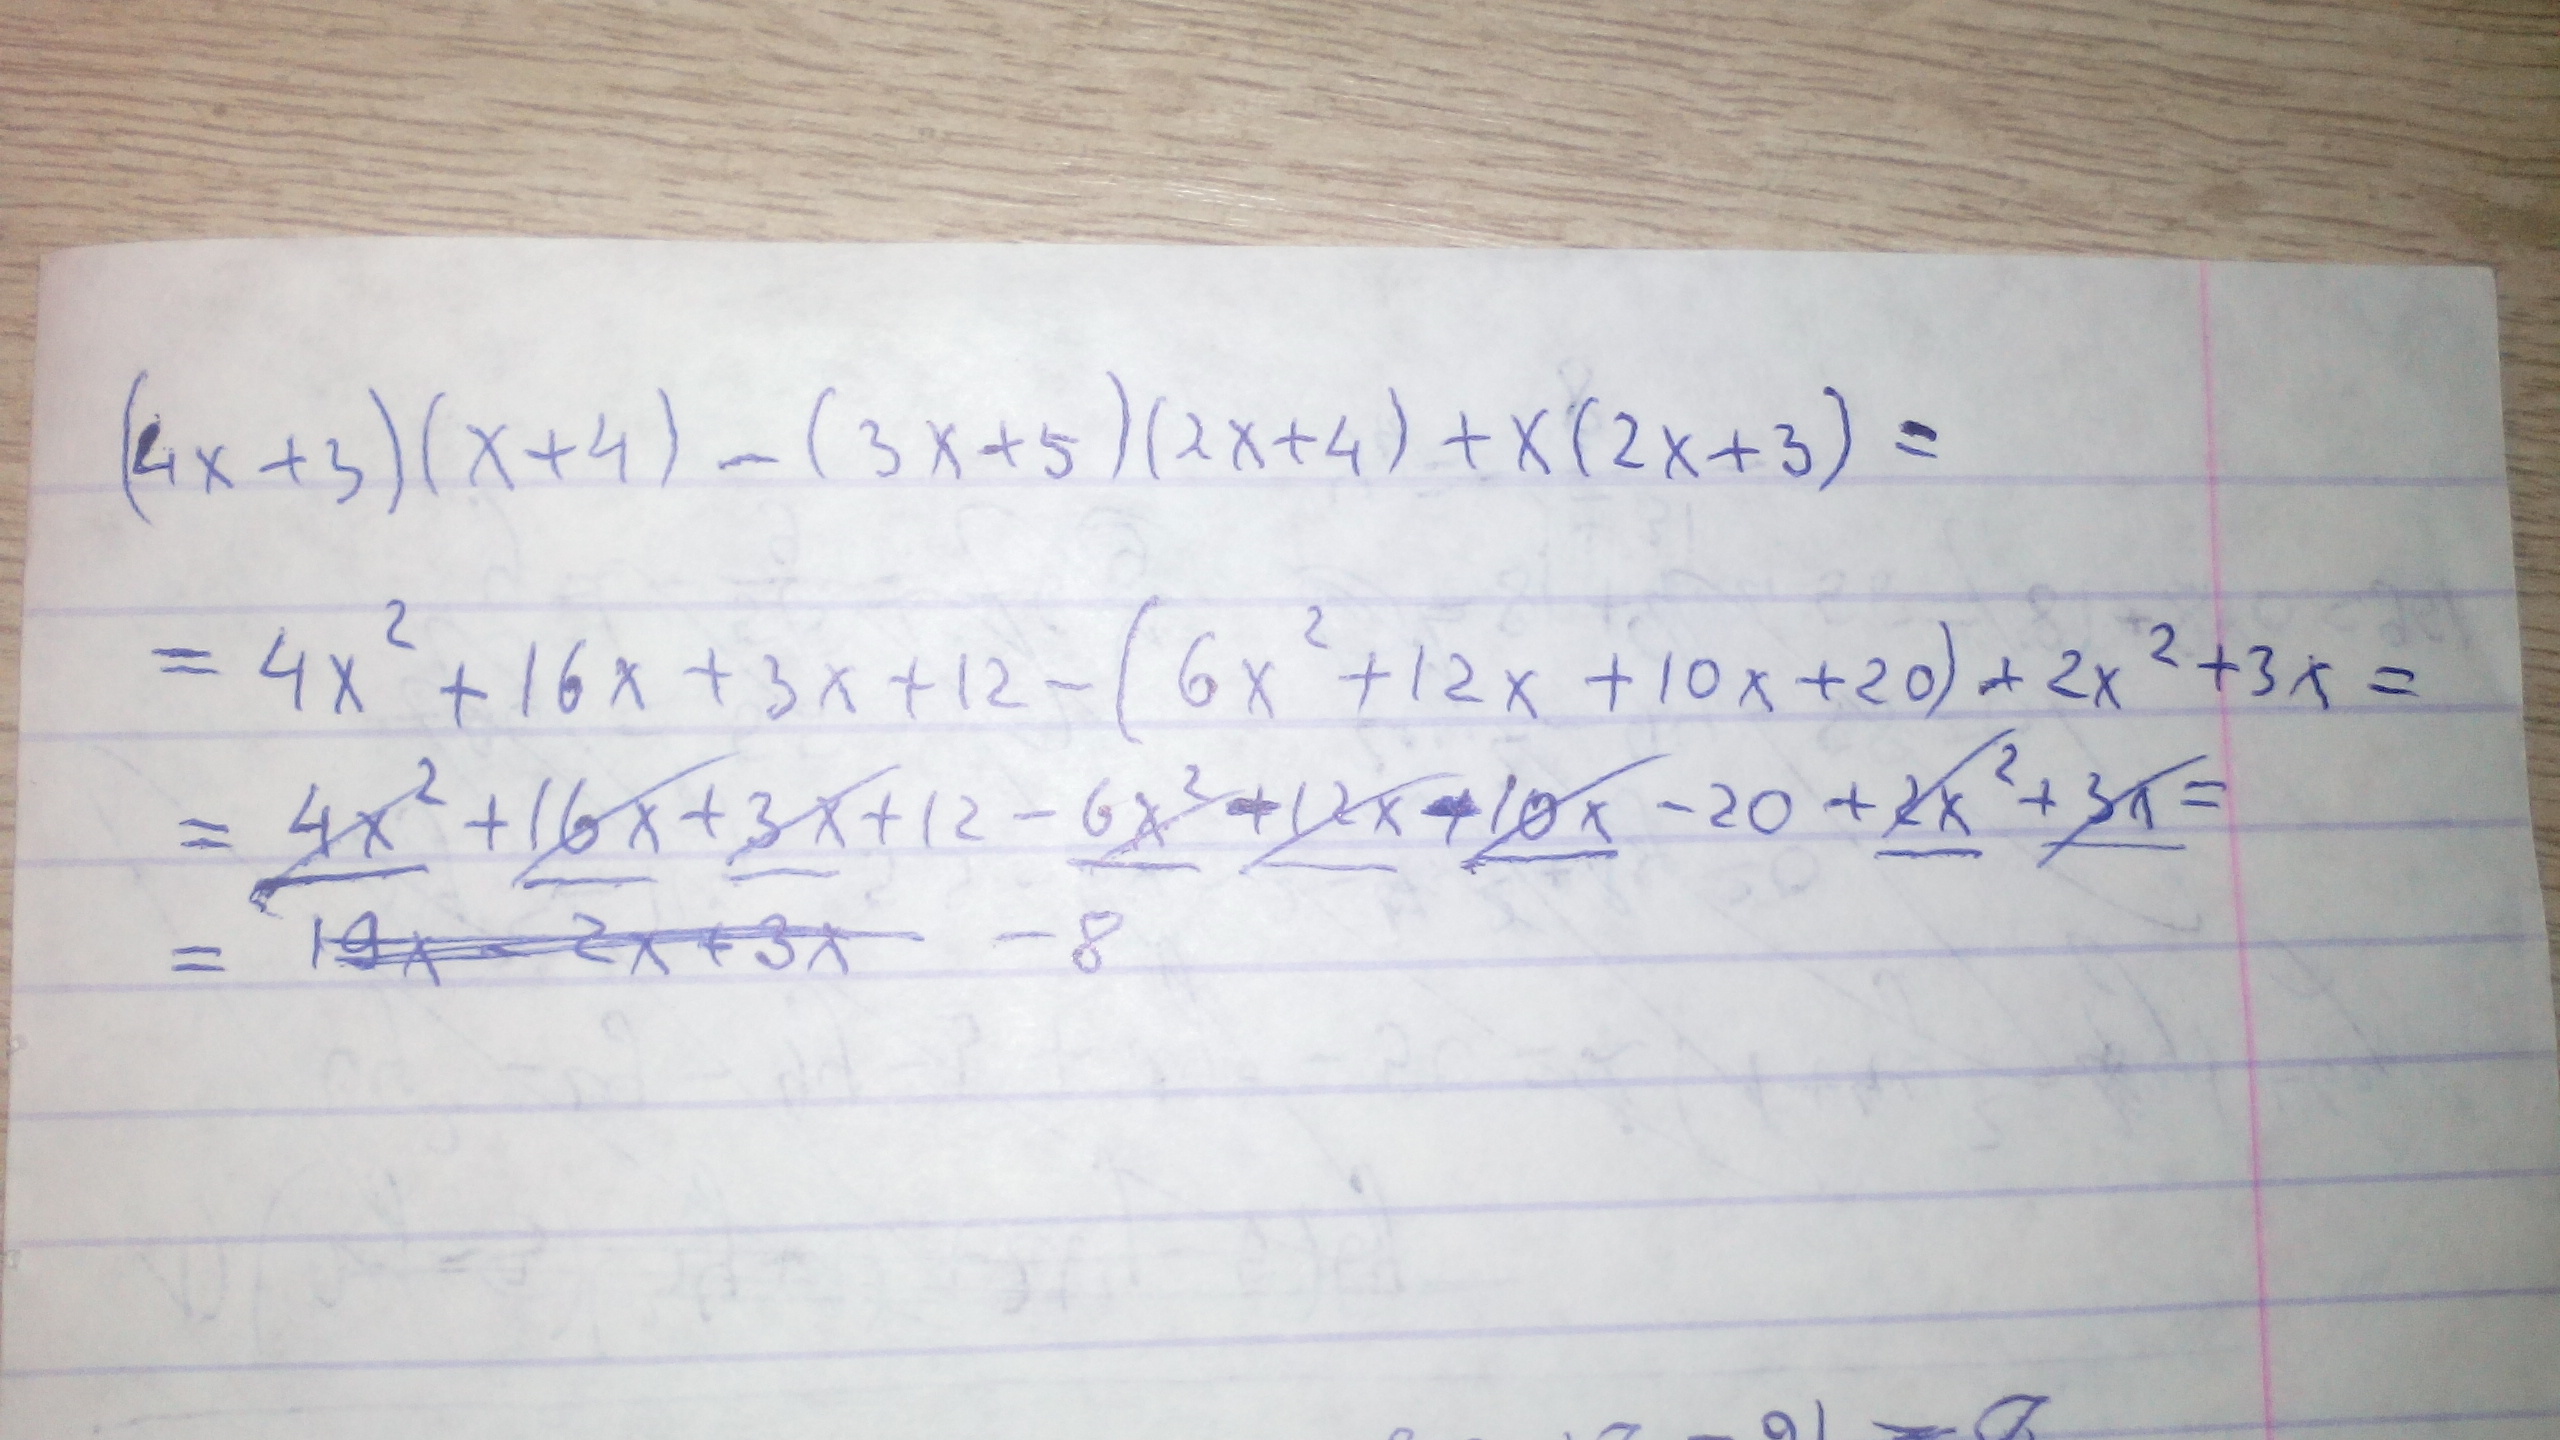 (4x+3)(x+4) - (3x+5)(2x+4) + x(2x+3) =
= 4x² + 16x + 3x + 12 - (6x² + 12x + 10x + 20) + 2x² + 3x =
= 4x² + 16x + 3x + 12 - 6x² - 12x - 10x - 20 + 2x² + 3x =
= 19x - 2x + 3x - 8